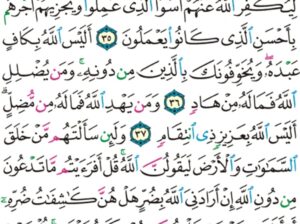 لِيُكَفِّرَ ٱللَّهُ عَنْهُمْ أَسْوَأَ ٱلَّذِى عَمِلُوا۟ وَيَجْزِيَهُمْ أَجْرَهُم
بِأَحْسَنِ ٱلَّذِى كَانُوا۟ يَعْمَلُونَ ٣٥ أَلَيْسَ ٱللَّهُ بِكَافٍ
عَبْدَهُۥ وَيُخَوِّفُونَكَ بِٱلَّذِينَ مِن دُونِهِۦ وَمَن يُضْلِلِ
ٱللَّهُ فَمَا لَهُۥ مِنْ هَادٍ ٣٦ وَمَن يَهْدِ ٱللَّهُ فَمَا لَهُۥ مِن مُّضِلٍّ
أَلَيْسَ ٱللَّهُ بِعَزِيزٍ ذِى ٱنتِقَامٍ ٣٧ وَلَئِن سَأَلْتَهُم مَّنْ خَلَقَ
ٱلسَّمَٰوَٰتِ وَٱلْأَرْضَ لَيَقُولُنَّ ٱللَّهُ قُلْ أَفَرَءَيْتُم مَّا تَدْعُونَ
مِن دُونِ ٱللَّهِ إِنْ أَرَادَنِىَ ٱللَّهُ بِضُرٍّ هَلْ هُنَّ كَٰشِفَٰتُ ضُرِّهِۦٓ